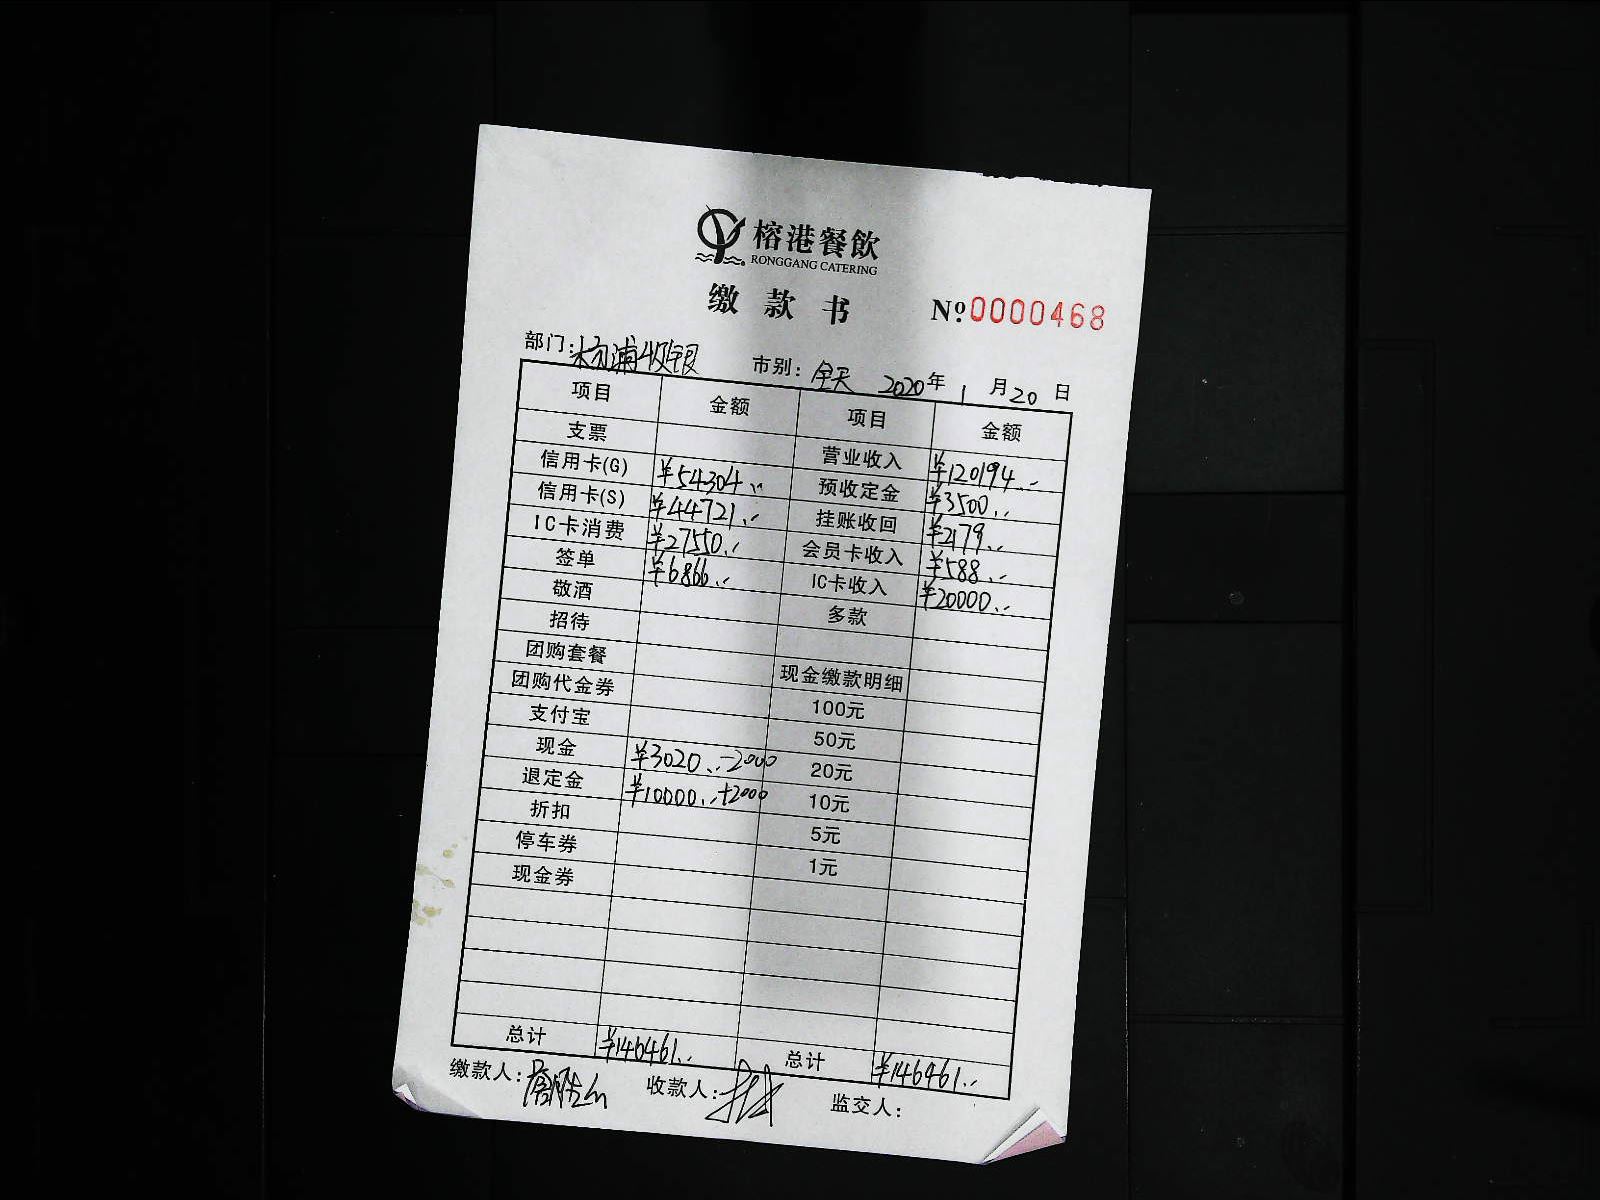 榕港餐飲
RONGGANG CATERING
缴款书 № 0000468
部门：杨浦收银 市别：全天 2020年 1月20日
项目 金额 项目 金额
支票 营业收入 ¥120194.-
信用卡(G) ¥54304.- 预收定金 ¥3500.-
信用卡(S) ¥44721.- 挂账收回 ¥2179.-
IC卡消费 ¥27550.- 会员卡收入 ¥588.-
签单 ¥6866.- IC卡收入 ¥20000.-
敬酒 多款
招待
团购套餐 现金缴款明细
团购代金券 100元
支付宝 50元
现金 ¥3020.--2000 20元
退定金 ¥10000.-+2000 10元
折扣 5元
停车券 1元
现金券
总计 ¥146461.- 总计 ¥146461.-
缴款人： 收款人： 监交人：